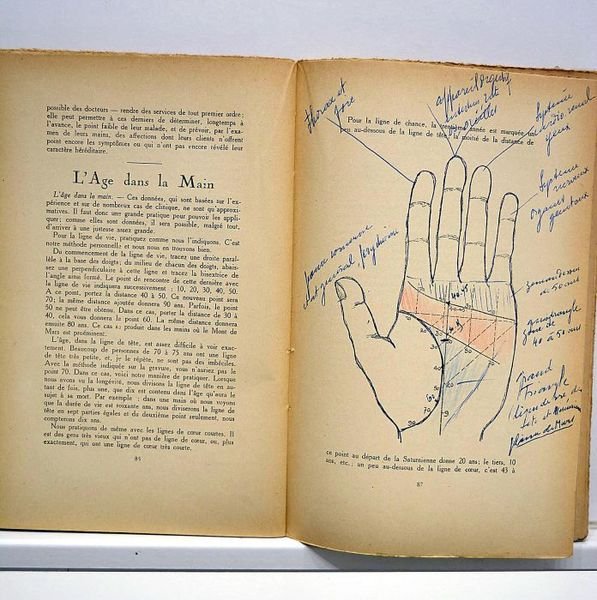 possible des docteurs — rendre des services de tout premier ordre ;
elle peut permettre à ces derniers de déterminer, longtemps à
l'avance, le point faible de leur malade, et de prévoir, par l'exa-
men de leurs mains, des affections dont leurs clients n'offrent
point encore les symptômes ou qui n'ont pas encore révélé leur
caractère héréditaire.
L'Age dans la Main
L'âge dans la main. — Ces données, qui sont basées sur l'ex-
périence et sur de nombreux cas de clinique, ne sont qu'approxi-
matives. Il faut donc une grande pratique pour pouvoir les appli-
quer ; comme elles sont données, il sera possible, malgré tout,
d'arriver à une justesse assez grande.
Pour la ligne de vie, pratiquez comme nous l'indiquons. C'est
notre méthode personnelle et nous nous en trouvons bien.
Du commencement de la ligne de vie, tracez une droite paral-
lèle à la base des doigts ; du milieu de chacun des doigts, abais-
sez une perpendiculaire à cette ligne et tracez la bisectrice de
l'angle ainsi formé. Le point de rencontre de cette dernière avec
la ligne de vie indiquera successivement : 10, 20, 30, 40, 50.
A ce point, portez la distance 40 à 50. Ce nouveau point sera
70 ; la même distance ajoutée donnera 90. Parfois, le point
50 ne peut être obtenu. Dans ce cas, porter la distance de 30 à
40, cela vous donnera le point 60. La même distance donnera
ensuite 80. Ce cas se produit dans les mains où le Mont de
Mars est proéminent.
L'âge, dans la ligne de tête, est assez difficile à voir exacte-
ment. Beaucoup de personnes de 70 à 75 ans ont une ligne
de tête très petite, et, je le répète, ne sont pas des imbéciles.
Avec la méthode indiquée sur la gravure, vous n'auriez pas le
point 70. Dans ce cas, voici notre manière de pratiquer. Lorsque
nous avons vu la longévité, nous divisons la ligne de tête en au-
tant de fois, plus une, que dix est contenu dans l'âge qu'aura le
sujet à sa mort. Par exemple : dans une main où nous voyons
que la durée de vie est soixante ans, nous diviserons la ligne de
tête en sept parties égales et de deuxième point seulement, nous
compterons dix ans.
Nous pratiquons de même avec les lignes de cœur courtes. Il
est des gens très vieux qui n'ont pas de ligne de cœur, ou, plus
exactement, qui ont une ligne de cœur très courte.
thorax et
foie
appareil digestif
Septième
yeux
Pour la ligne de chance, la trentième année est marquée un
peu au-dessous de la ligne de tête
moitié de la distance de
Septième
nerveux
organes
génitaux
40-45
à 50 ans
quadrangle
zone de
40 à 50 ans
Grand
triangle
plaine de Mars
ce point au départ de la Saturnienne donne 20 ans ; le tiers, 10
ans, etc. ; un peu au-dessous de la ligne de cœur, c'est 43 à
87